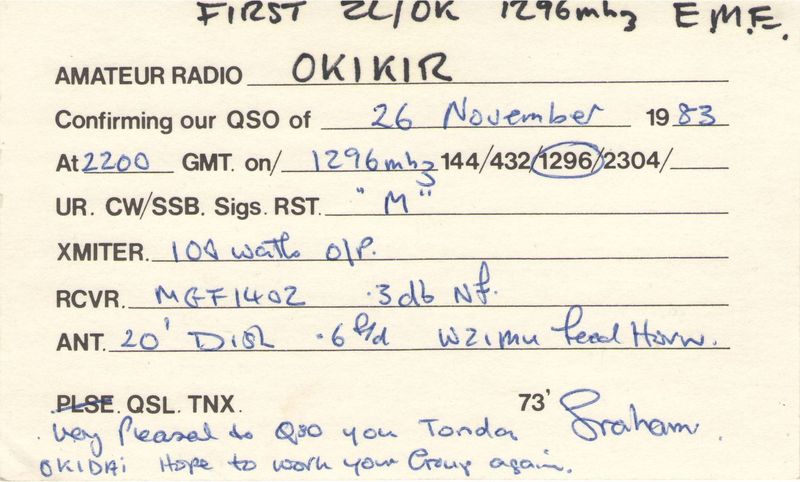 FIRST ZL/OK 1296mhz E.M.E.
AMATEUR RADIO OK1KIR
Confirming our QSO of 26 November 1983
At 2200 GMT. on/ 1296mhz 144/432/1296/2304/
UR. CW/SSB. Sigs. RST. "M"
XMITER. 100 watts O/P.
RCVR. MGF1402 .3db Nf.
ANT. 20' DISH .6 f/d W2IMU feed Horn.
PLSE. QSL. TNX. 73' Graham.
Very Pleased to QSO you Tonda
OK1DAI Hope to work your Group again.